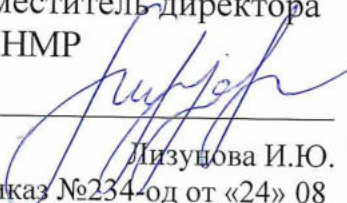 меститель директора
НМР
Лизунова И.Ю.
иказ №234-од от «24» 08